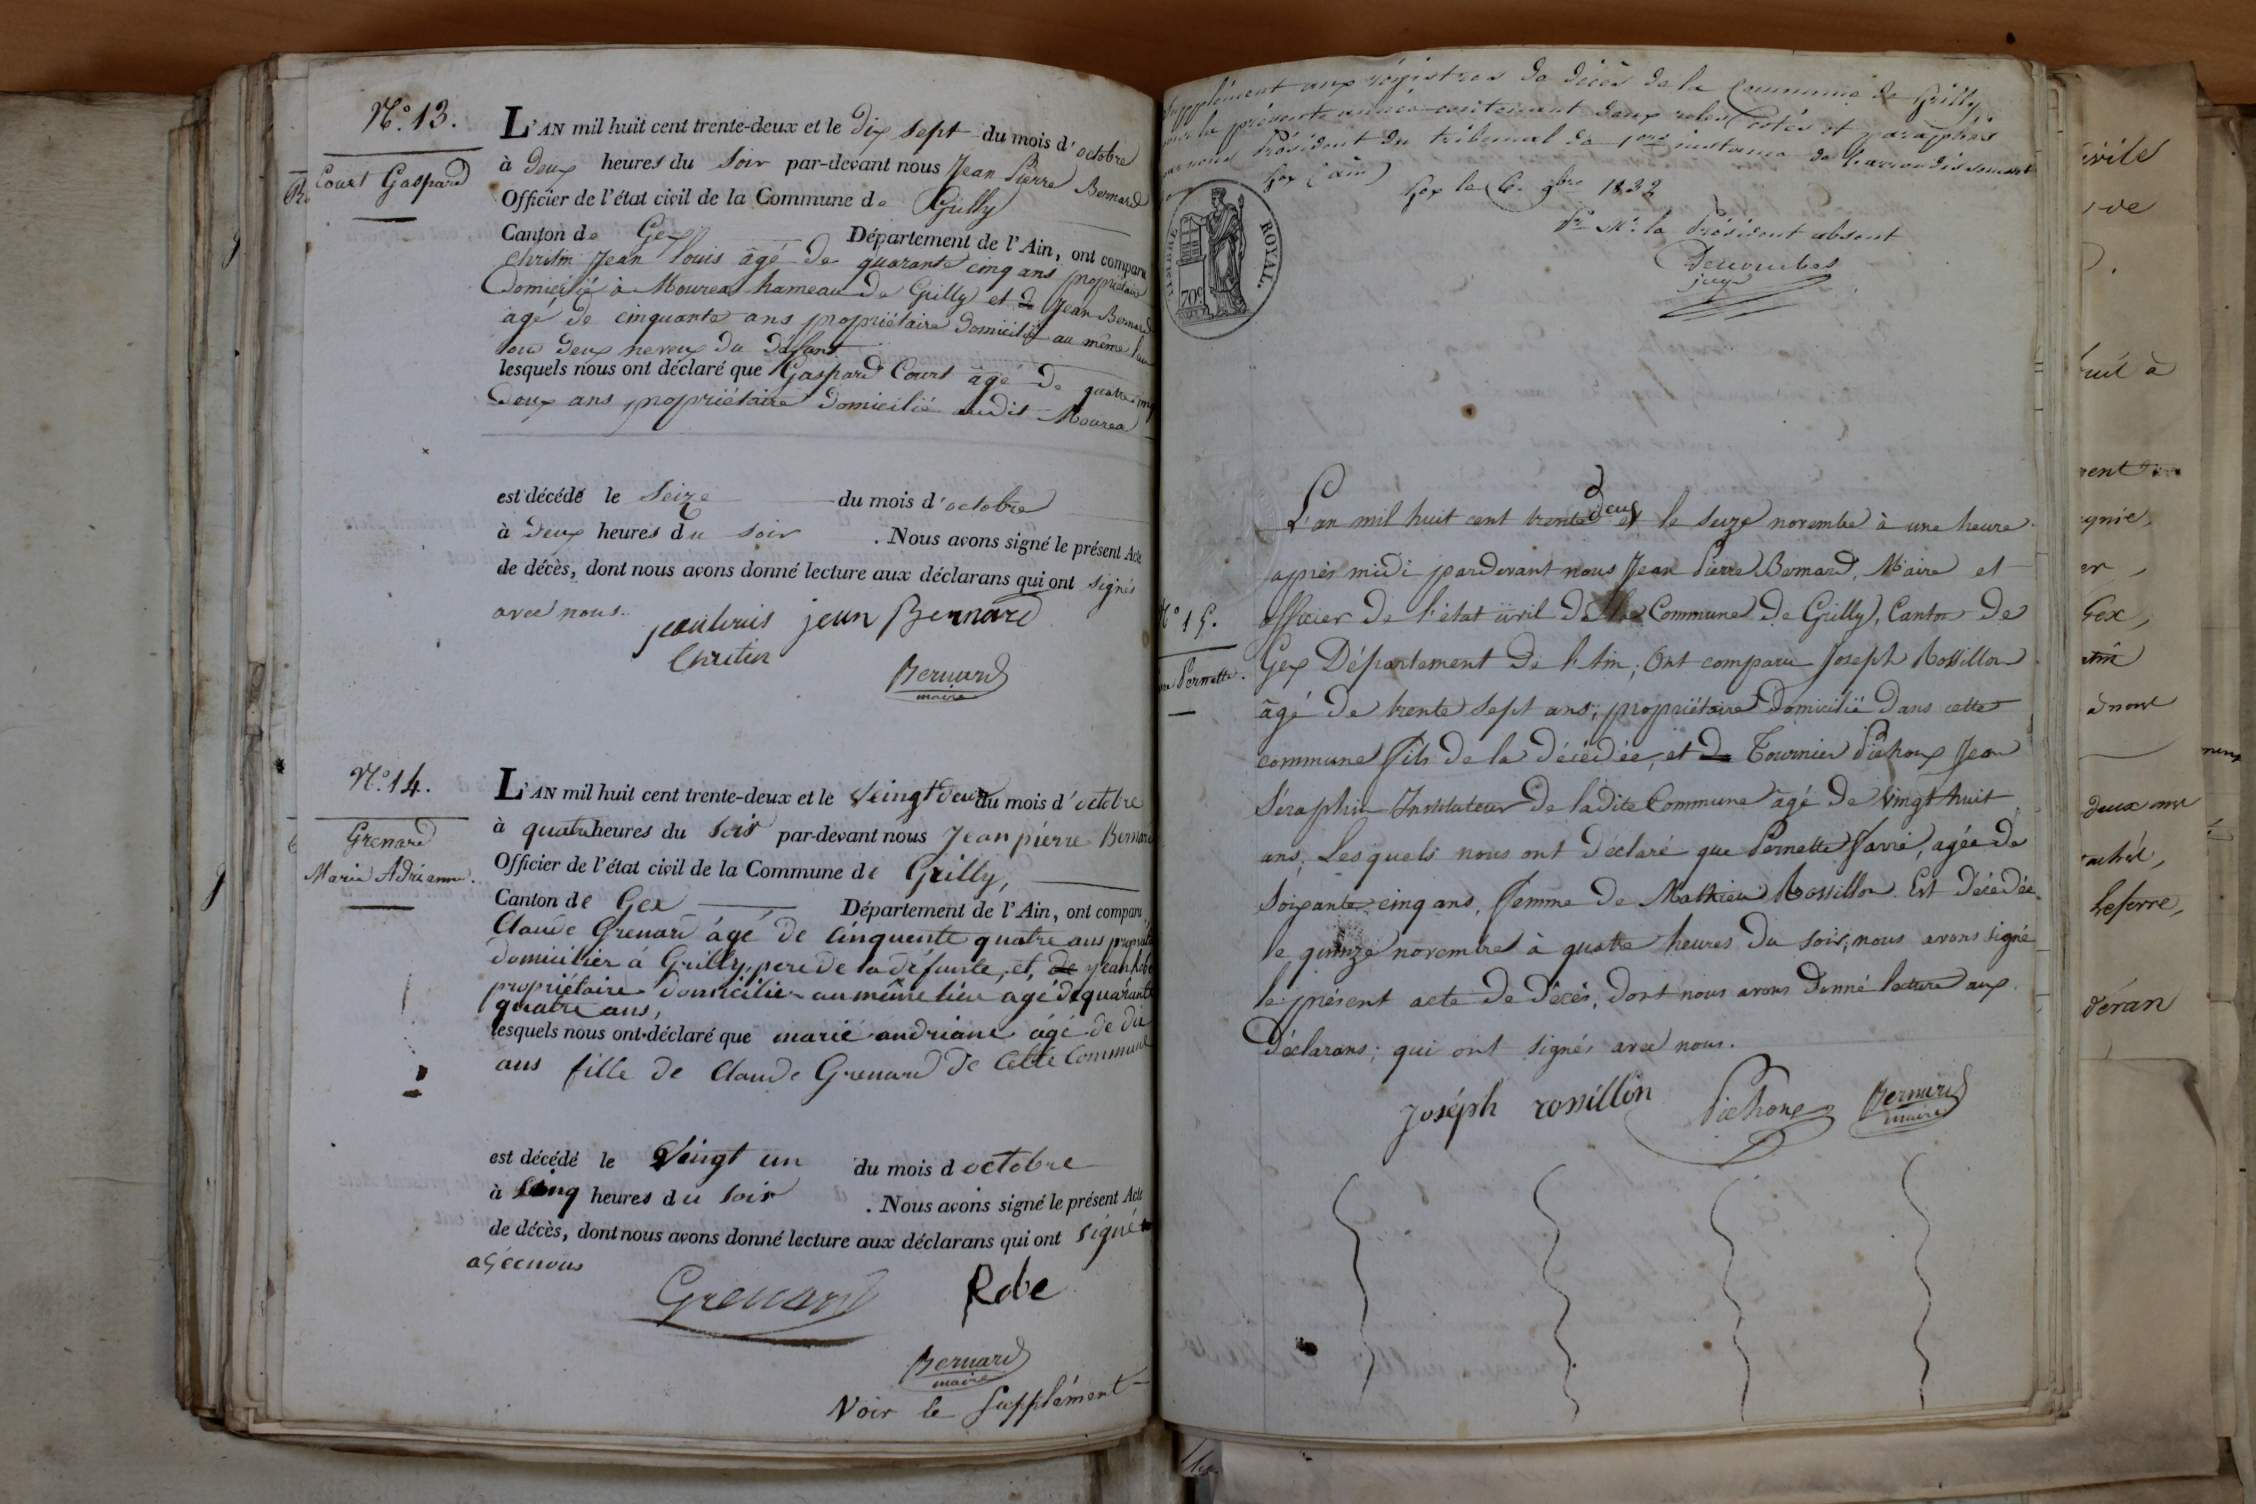 N.º 13.
Court Gaspard
L'AN mil huit cent trente-deux et le dix sept du mois d'octobre
à deux heures du soir par-devant nous Jean Pierre Bernard
Officier de l'état civil de la Commune de Grilly
Canton de Gex Département de l'Ain, ont comparu
Chritin Jean Louis âgé de quarante cinq ans propriétaire
domicilié à Mourex hameau de Grilly et de Jean Bernard
âgé de cinquante ans propriétaire domicilié au même lieu
tous deux neveux du défunt
lesquels nous ont déclaré que Gaspard Court âgé de quatre vingt
deux ans propriétaire domicilié audit Mourex
est décédé le Seize du mois d'octobre
à deux heures du soir . Nous avons signé le présent Acte
de décès, dont nous avons donné lecture aux déclarans qui ont signés
avec nous.
jean louis jean Bernard
Chritin
Bernard
maire
N.º 14.
Grenard
Marie Adrienne.
L'AN mil huit cent trente-deux et le veingt deux du mois d'octobre
à quatre heures du soir par-devant nous Jean pierre Bernard
Officier de l'état civil de la Commune de Grilly,
Canton de Gex Département de l'Ain, ont comparu
Claude Grenard âgé de cinquente quatre ans propriétaire
domicilier à Grilly, pere de la défunte, et, de jean Robe
propriétaire domicilier au même lieu âgé de quarante
quatre ans,
lesquels nous ont déclaré que marie andriane âgé de dix
ans fille de Claude Grenard de cette Commune
est décédé le veingt un du mois d octobre
à sinq heures du soir . Nous avons signé le présent Acte
de décès, dont nous avons donné lecture aux déclarans qui ont signé
avecnous
Grenard Robe
Bernard
maire
Voir le Supplément
Supplément aux régistres de décès de la Commune de Grilly
pour la présente année contenant deux roles cotés et paraphés
par nous Président du tribunal de 1ere instance de l'arrondissement de
Gex (ain)
Gex le 6 9bre 1832
Pr Mr. le Président absent
juge
TIMBRE ROYAL.
70c
N.º 15.
Pernette.
L'an mil huit cent trente deux et le seize novembre à une heure
après midi pardevant nous Jean Pierre Bernard, Maire et
officier de l'état civil de la Commune de Grilly, Canton de
Gex Département de l'Ain, Ont comparu Joseph Rossillon
âgé de trente sept ans, propriétaire domicilié dans cette
commune fils de la décédée, et de Tournier Pichoux Jean
Séraphin Instituteur de ladite Commune âgé de vingt huit
ans, Lesquels nous ont déclaré que Pernette Favre, agée de
Soixante cinq ans, femme de Mathieu Rossillon Est décédée
le quinze novembre à quatre heures du soir, nous avons signé
le présent acte de décès, dont nous avons donné lecture aux
déclarans; qui ont signés avec nous.
Joséph rossillon Pichoux Bernard
maire